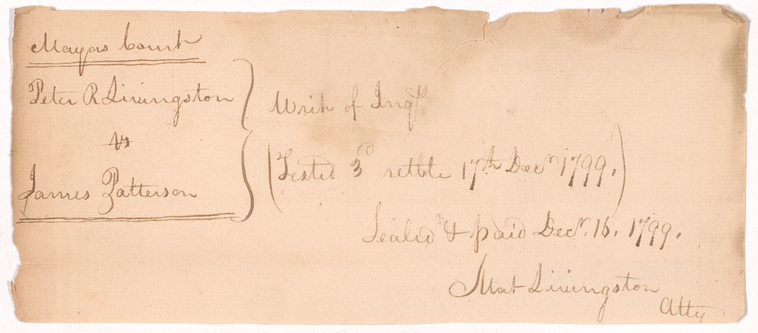 Mayors Court
Peter R Livingston
vs
James Patterson
Writ of Inqy
(Tested 3d retble 17th Decr 1799.)
Sealed & paid Decr. 16. 1799.
Mat Livingston
Atty